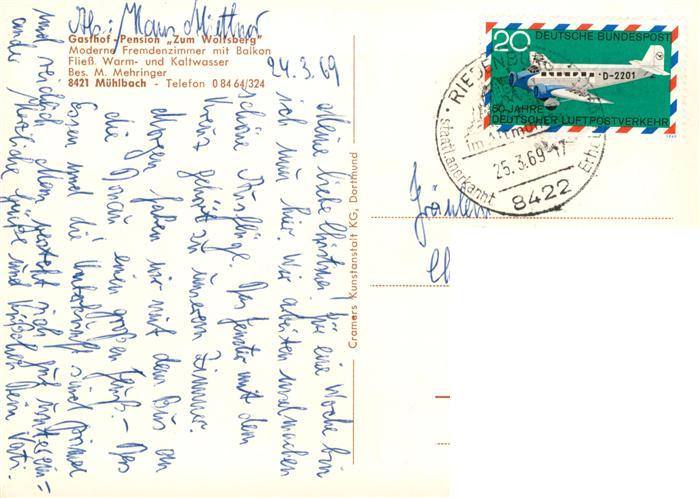 Abs: Hans Miethner
Gasthof - Pension „Zum Wolfsberg"
Moderne Fremdenzimmer mit Balkon
Fließ. Warm- und Kaltwasser
Bes. M. Mehringer
8421 Mühlbach - Telefon 0 84 64/324
24.3.69
Meine liebe Christine! Für eine Woche bin
ich nun hier. Wir arbeiten und machen
schöne Ausflüge. Das Fenster mit dem
Kreuz gehört zu unserem Zimmer.
Morgen fahren wir mit dem Bus an
die Donau einem großen Fluß. - Das
Essen und die Unterkunft sind prima
und reichlich. Man versteht sich gut unterein-
ander. Herzliche Grüße und Küßchen Dein Vati.
Cramers Kunstanstalt KG, Dortmund
20 DEUTSCHE BUNDESPOST
D-2201
50 JAHRE
DEUTSCHER LUFTPOSTVERKEHR
1969
RIEDENBU
im Altmü
25.3.69-17
staatl. anerkannt
Erho
8422
Fräulein
Ch